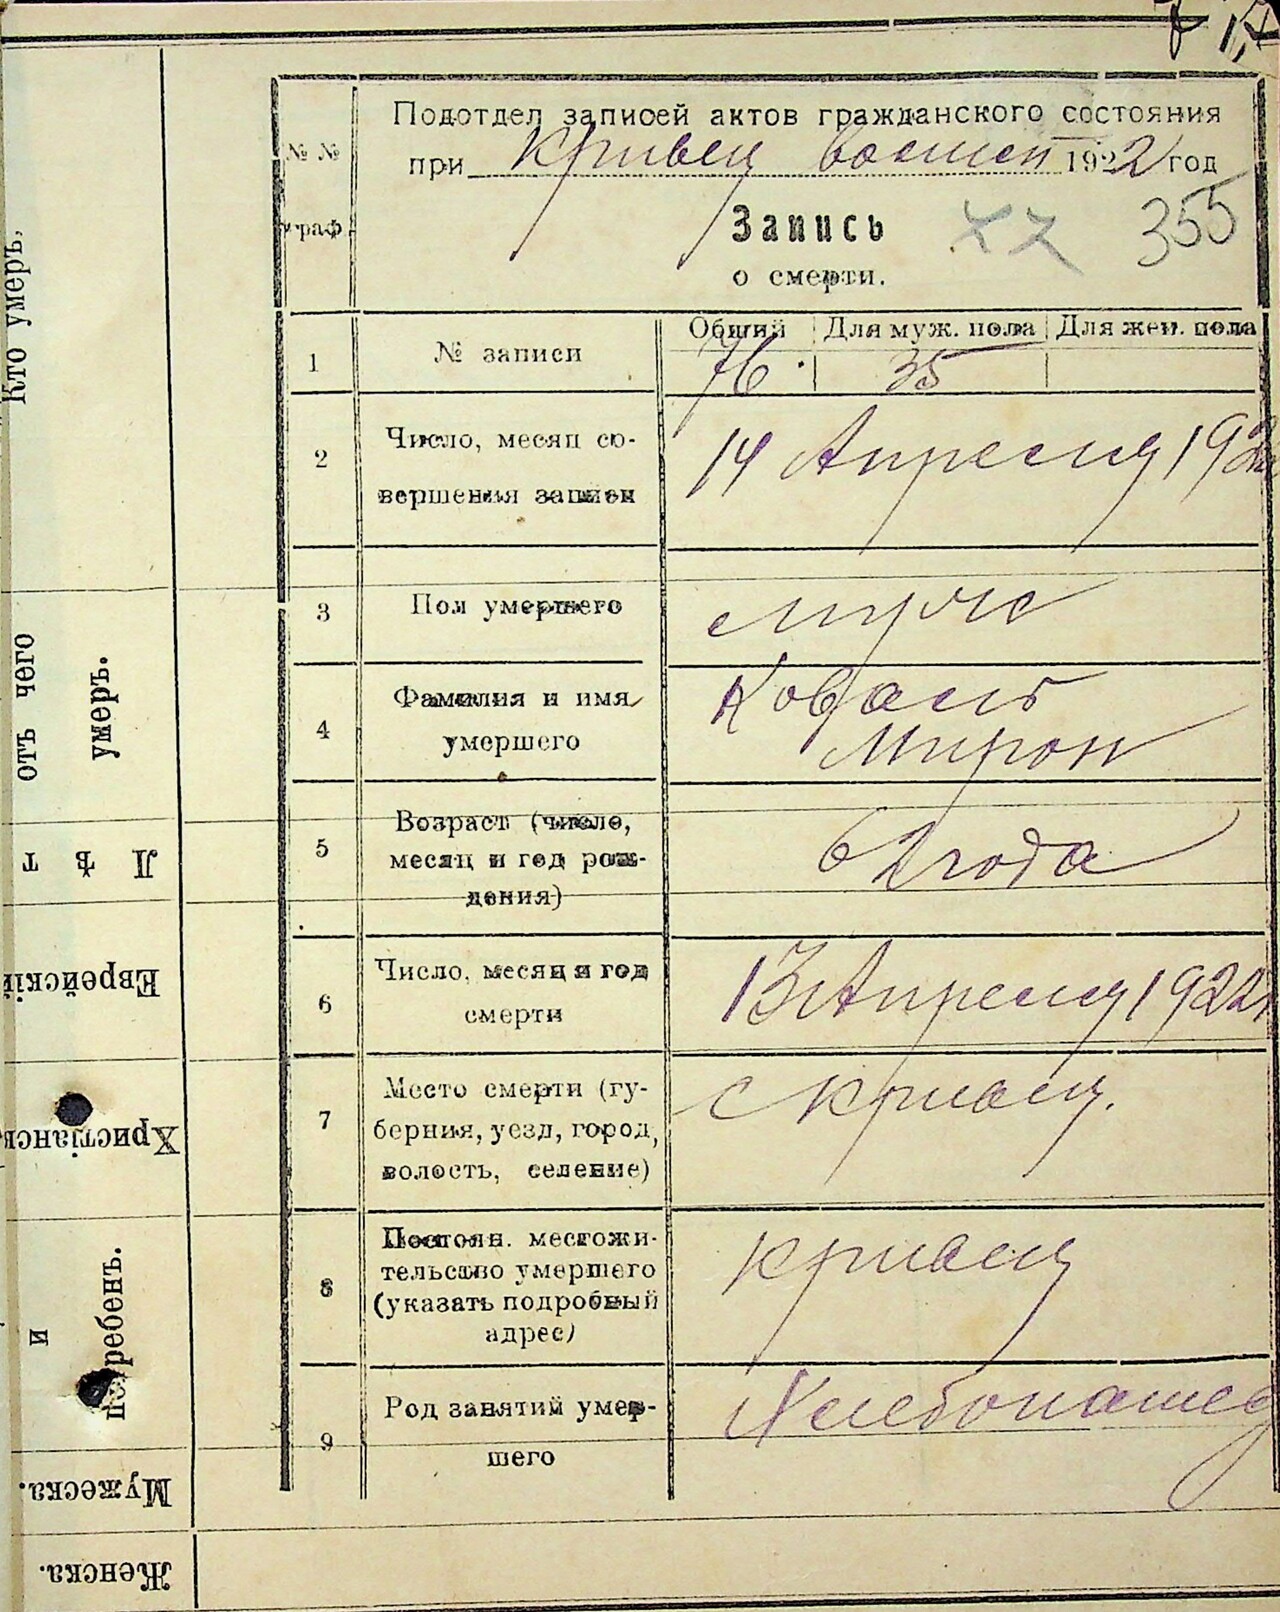 Подотдел записей актов гражданского состояния
при Кривец волисп 1922 год
№№ граф.
Запись
355
о смерти.
Общий Для муж. пола Для жен. пола
1 № записи 76. 35
2 Число, месяц со-
вершения записи
14 Апреля 192
3 Пол умершего муж
4 Фамилия и имя
умершего
Коваль
Мирон
5 Возраст (число,
месяц и год рож-
дения)
62 года
6 Число, месяц и год
смерти
13 Апреля 1922
7 Место смерти (гу-
берния, уезд, город,
волость, селение)
с Кривец.
8 Постоян. местожи-
тельство умершего
(указать подробный
адрес)
Кривец
9 Род занятий умер-
шего
Хлебопашец
Кто умеръ,
отъ чего
умеръ.
Лѣт
Еврейскій
Христіанск
и
погребенъ.
Мужеска.
Женска.